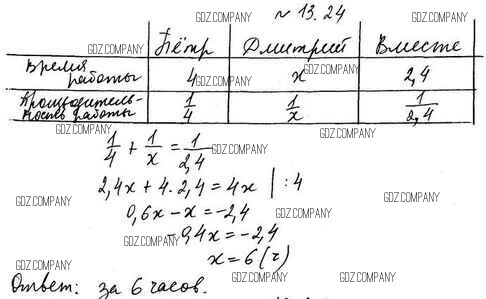 № 13.24
GDZ.COMPANY
Пётр Дмитрий Вместе
GDZ.COMPANY GDZ.COMPANY GDZ.COMPANY
Время работы 4 x 2,4
GDZ.COMPANY GDZ.COMPANY GDZ.COMPANY
Производительность работы 1/4 1/x 1/2,4
GDZ.COMPANY GDZ.COMPANY
1/4 + 1/x = 1/2,4
GDZ.COMPANY
2,4x + 4·2,4 = 4x | :4
GDZ.COMPANY GDZ.COMPANY
0,6x - x = -2,4
GDZ.COMPANY
-0,4x = -2,4
GDZ.COMPANY GDZ.COMPANY
x = 6 (ч)
GDZ.COMPANY GDZ.COMPANY GDZ.COMPANY
Ответ: за 6 часов.
GDZ.COMPANY